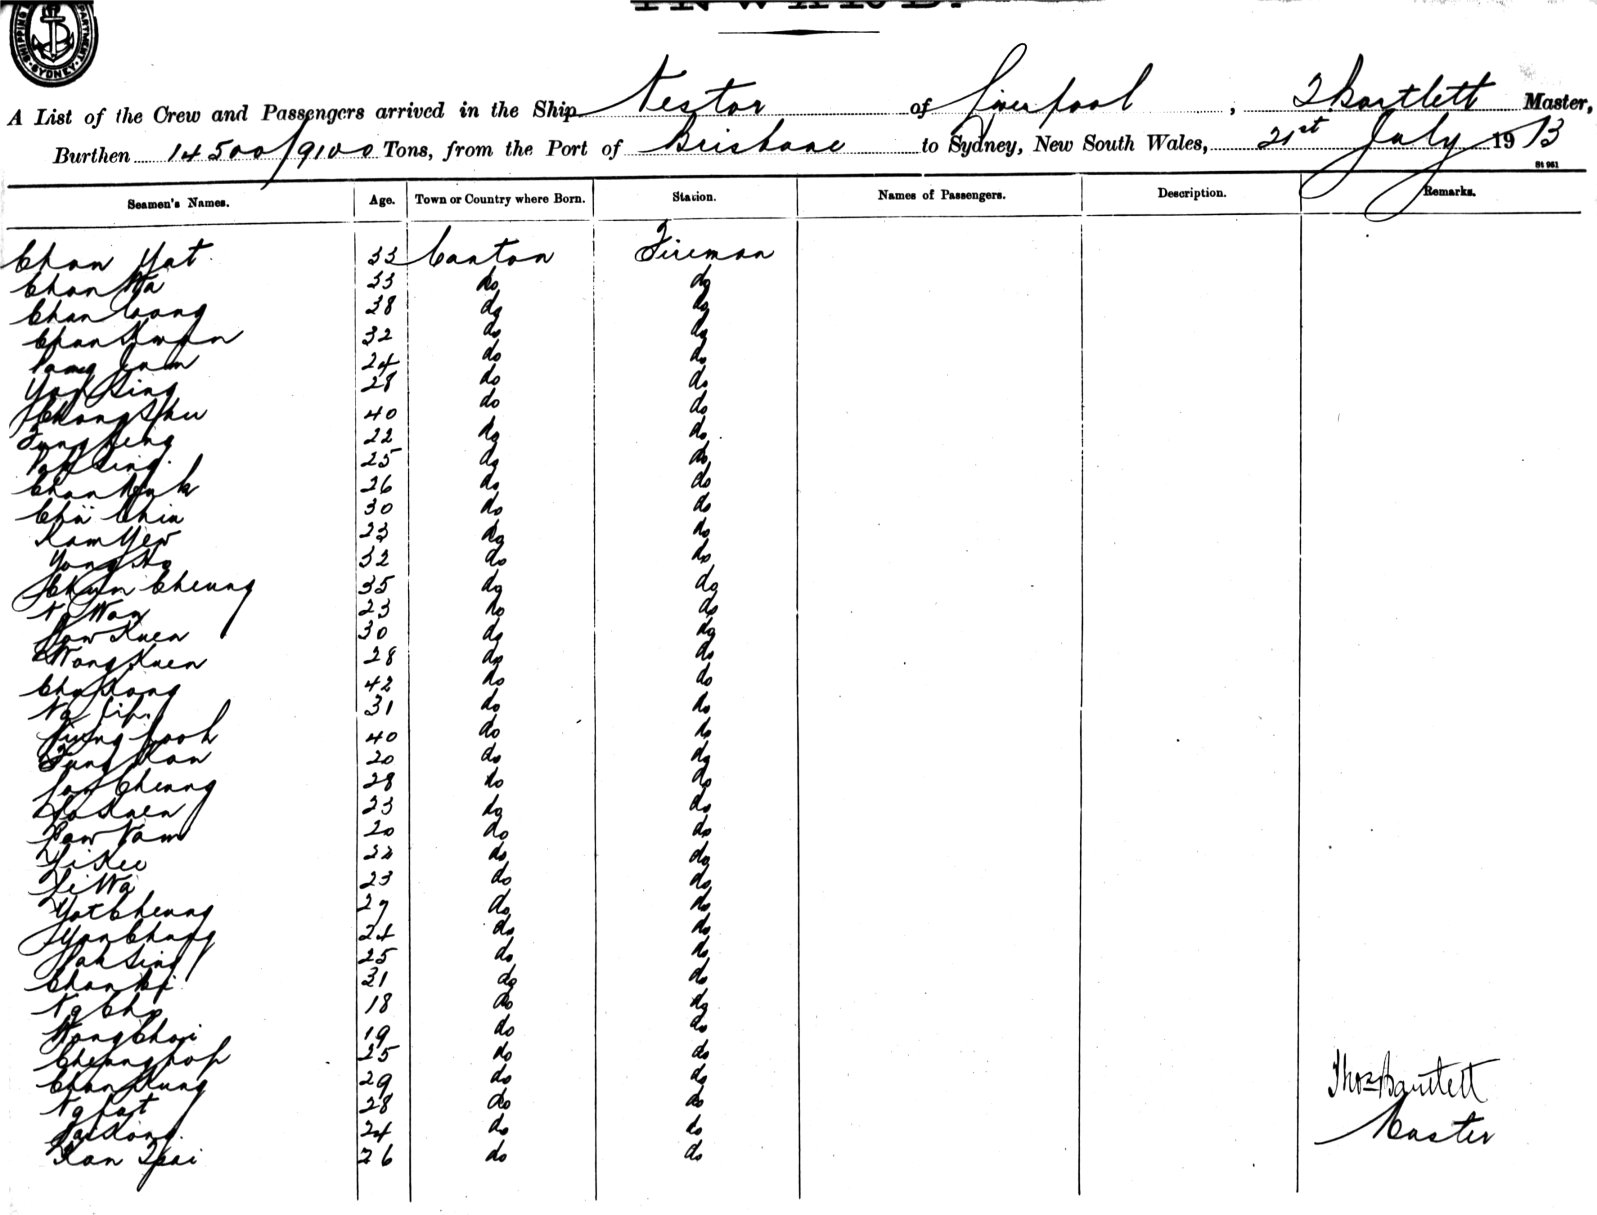 SHIPPING DEPARTMENT SYDNEY
INWARD.
A List of the Crew and Passengers arrived in the Ship Nestor of Liverpool, T Bartlett Master,
Burthen 14500/9100 Tons, from the Port of Brisbane to Sydney, New South Wales, 21st July 1913
St 961
Seamen's Names. Age. Town or Country where Born. Station. Names of Passengers. Description. Remarks.
Chan Yat 33 Canton Fireman
Chan Wa 33 do do
Chan 38 do do
Chan Kwan 32 do do
24 do do
Yap Sing 28 do do
40 do do
Fung 22 do do
Sing 25 do do
Chan 26 do do
Chu Chin 30 do do
Kam Yew 23 do do
Yong Ho 32 do do
Cheung 35 do do
Ng Wan 23 do do
Kuen 30 do do
Wong Kuen 28 do do
Chu Kong 42 do do
Ng 31 do do
40 do do
Fung Kan 20 do do
Cheung 28 do do
Ho Kuen 23 do do
20 do do
Li Kee 22 do do
Li Wa 23 do do
Yat Cheung 27 do do
24 do do
Sing 25 do do
Chan Ki 31 do do
Ng Cho 18 do do
Wong Choi 19 do do
Cheung 25 do do
Chan Kung 29 do do
Ng Fat 28 do do
Kong 24 do do
Kan Tsai 26 do do
Thos Bartlett
Master